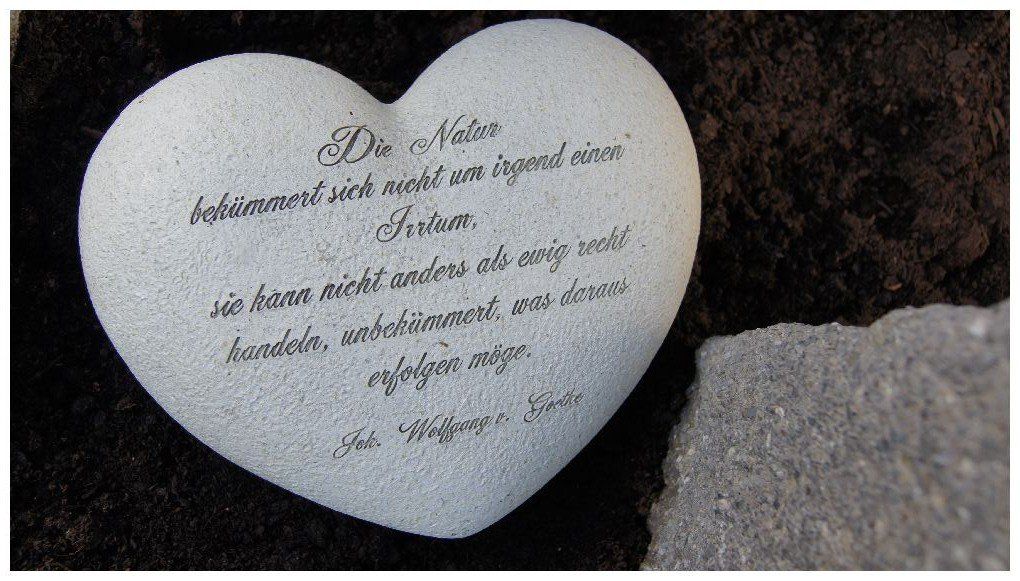 Die Natur
bekümmert sich nicht um irgend einen
Irrtum,
sie kann nicht anders als ewig recht
handeln, unbekümmert, was daraus
erfolgen möge.
Joh. Wolfgang v. Goethe